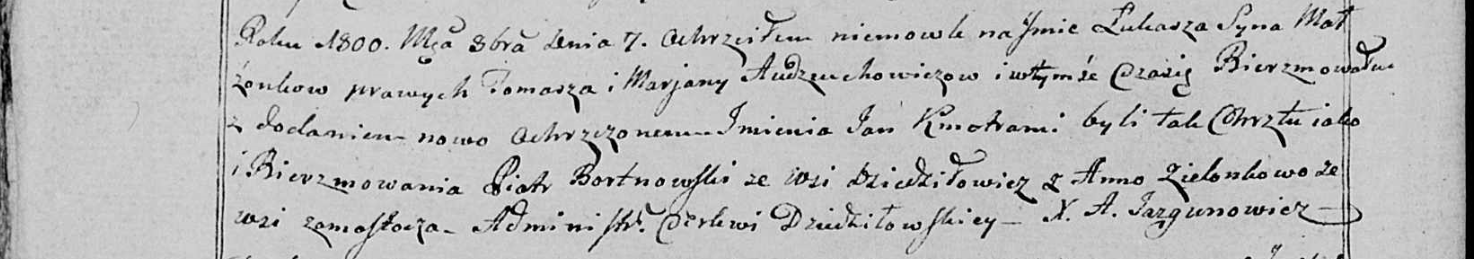 Roku 1800. Mca 8bra dnia 7. ochrzciłem niemowle na Jmie Łukasza Syna Mał
żonkow prawych Tomasza i Marjany Audzeuchowiczow i wtymże Czasię Bierzmowałem
z dodaniem nowo ochrzczonemu Jmienia Jan Kmotrami byli tak Chrztu iako
i Bierzmowania Piotr Bortnowski ze Wsi Dziedziłowicz z Anno Zielonkowo ze
wsi zamostocza - Administr. Cerkwi Dziedziłowskiey - X. A. Jazgunowicz